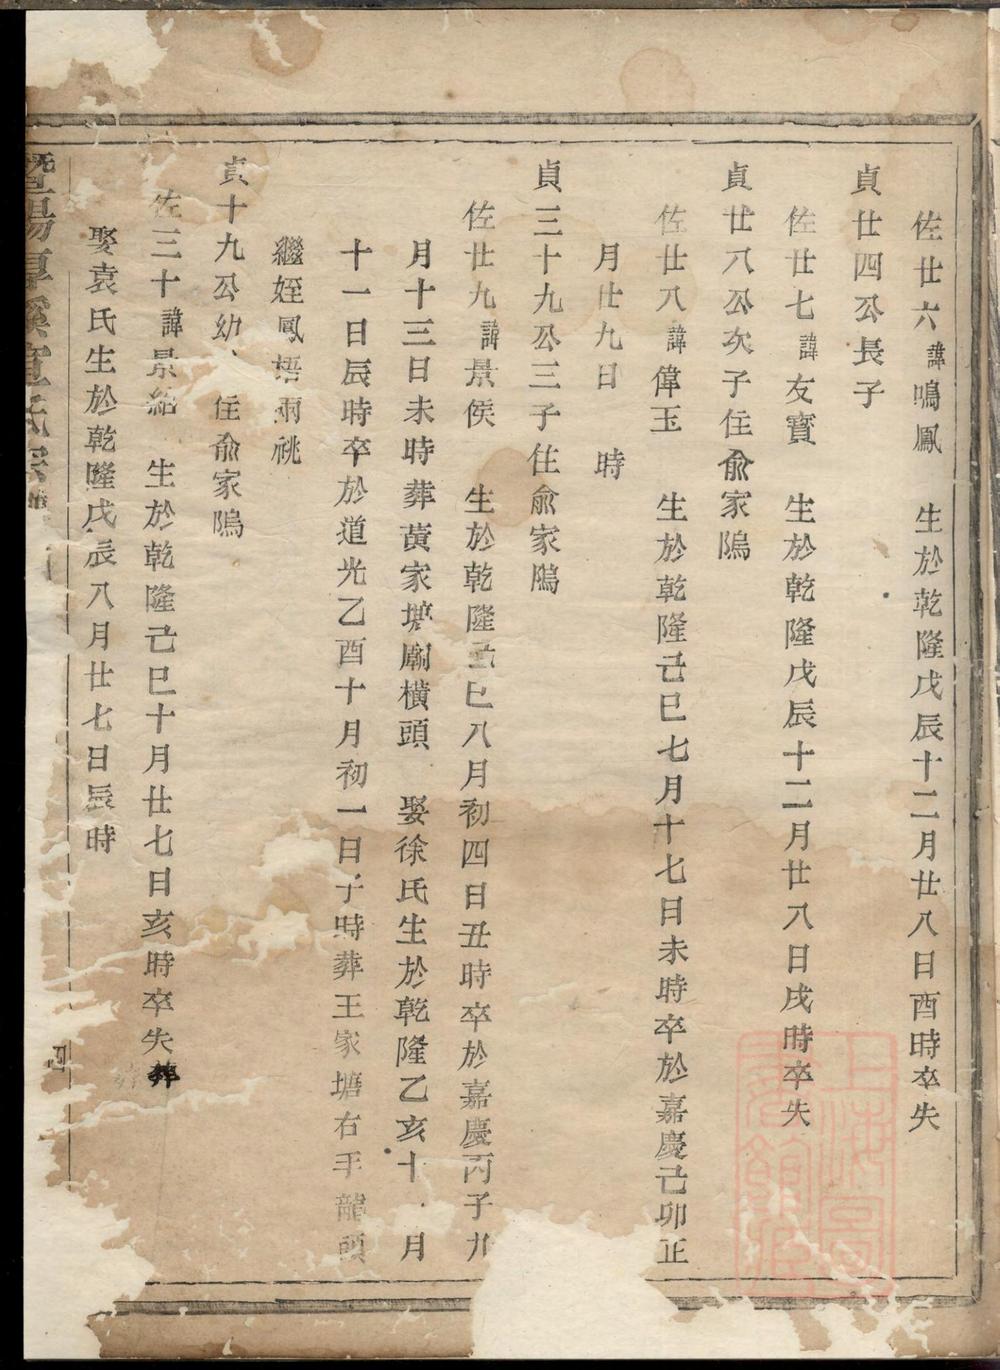 佐廿六諱鳴鳳　生於乾隆戊辰十二月廿八日酉時卒失
貞廿四公長子
佐廿七諱友寳　生於乾隆戊辰十二月廿八日戌時卒失
貞廿八公次子住俞家隖
佐廿八諱偉玉　生於乾隆己巳七月十七日未時卒於嘉慶己卯正
月廿九日　時
貞三十九公三子住俞家隖
佐廿九諱景侯　生於乾隆己巳八月初四日丑時卒於嘉慶丙子九
月十三日未時葬黄家塘廟横頭　娶徐氏生於乾隆乙亥十月
十一日辰時卒於道光乙酉十月初一日子時葬王家塘右手龍頭
繼姪鳳梧兩祧
貞十九公幼住俞家隖
佐三十諱景紹　生於乾隆己巳十月廿七日亥時卒失葬
娶袁氏生於乾隆戊辰八月廿七日辰時　葬
暨陽宣氏宗譜　四